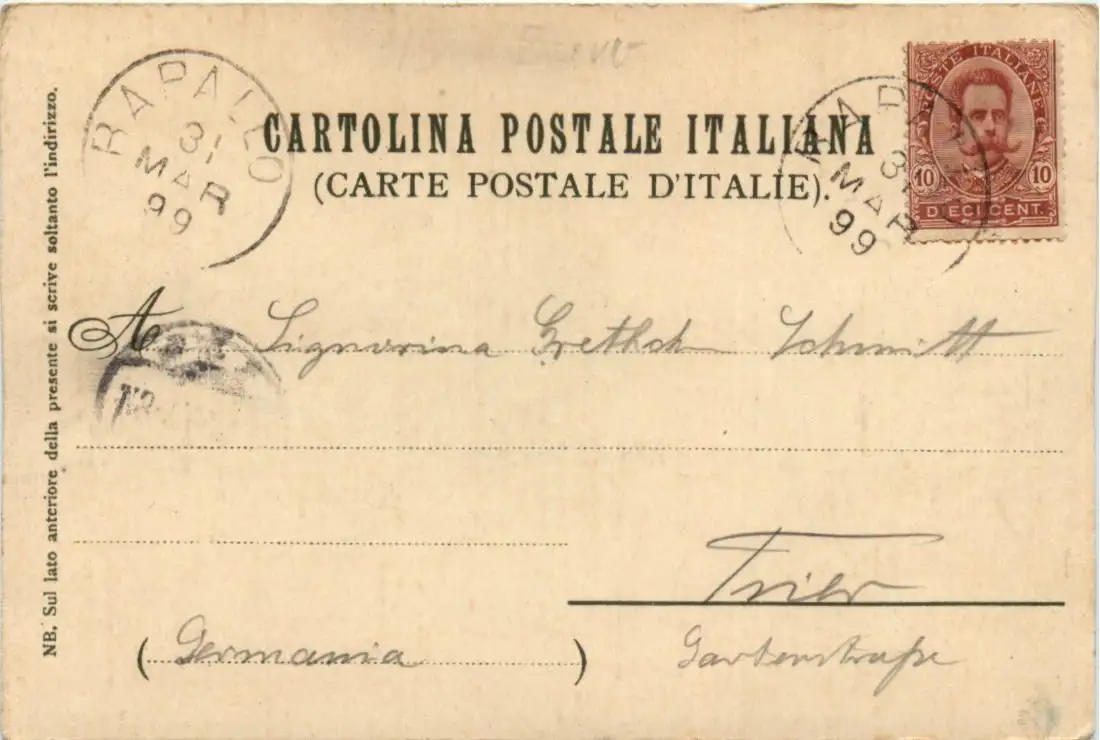 CARTOLINA POSTALE ITALIANA
(CARTE POSTALE D'ITALIE).
RAPALLO
31
MAR
99
RAPALLO
31
MAR
99
POSTE ITALIANE
10 10
DIECI CENT.
A Signorina Grethch Schmitt
Trier
(Germania)
Gartenstraße
NB. Sul lato anteriore della presente si scrive soltanto l'indirizzo.